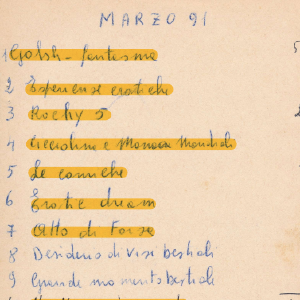 MARZO 91
1 Golsh - fantasma
2 Esperienze erotiche
3 Rochy 5
4 Cicciolina e Moana Mondiali
5 Le comiche
6 Erotic dream
7 Atto di Forza
8 Desiderio di visi bestiali
9 Grande momento bestiali